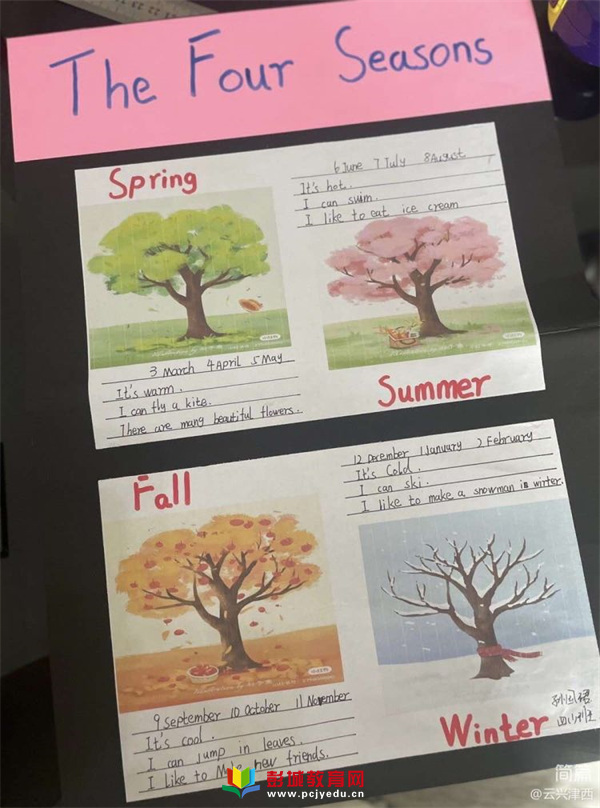 The Four Seasons
Spring
3 March 4 April 5 May
It's warm.
I can fly a kite.
There are many beautiful flowers.
6 June 7 July 8 August
It's hot.
I can swim.
I like to eat ice cream
Summer
Fall
9 september 10 October 11 November
It's cool.
I can jump in leaves.
I like to Make new friends.
12 December 1 January 2 February
It's Cold.
I can ski.
I like to make a snowman in winter.
Winter
彭城教育网
www.pcjyedu.cn
简篇
@云兴津西